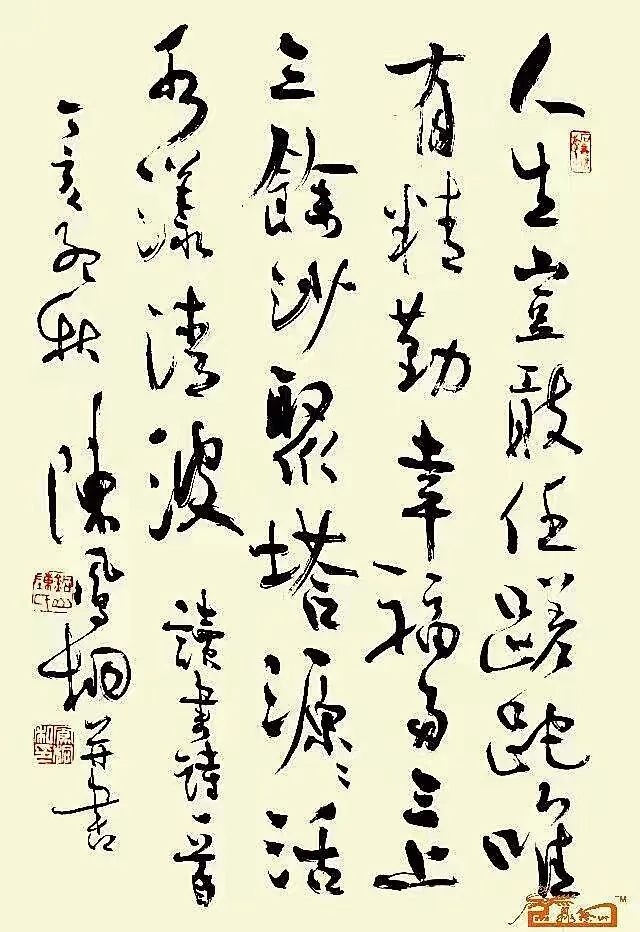 人生豈敢任蹉跎唯
有精勤幸福多三上
三餘沙聚塔源〻活
水漾清波 讀書詩一首
丁亥孟秋 陳鳳桐并書